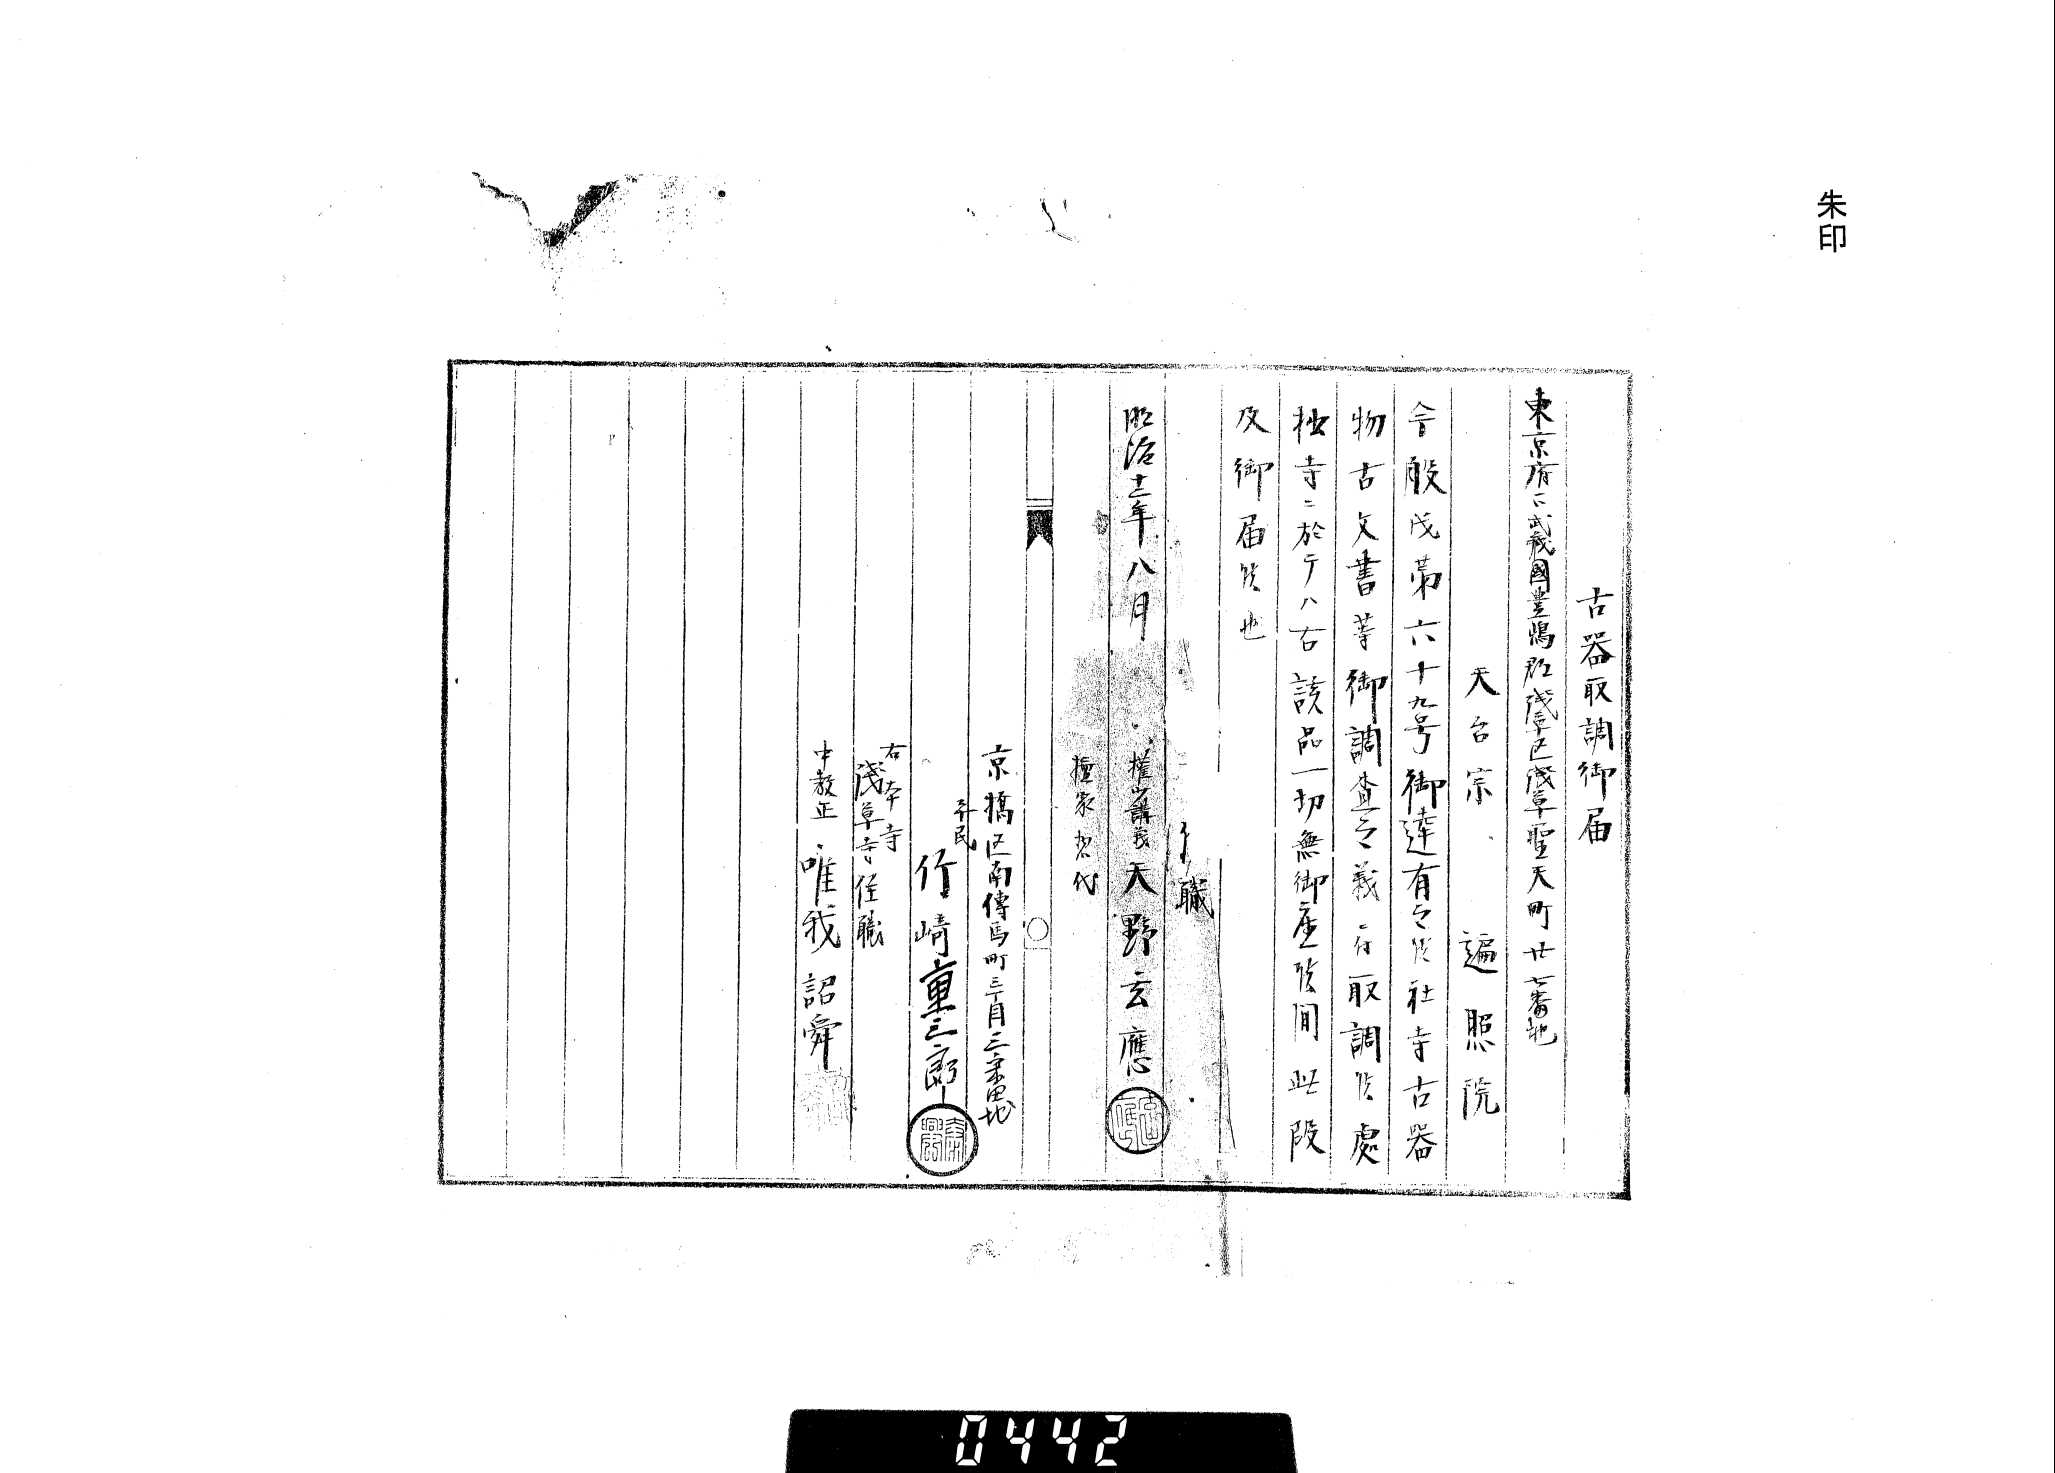 朱印
古器取調御届
東京府下武蔵國豊嶋郡浅草区浅草聖天町廿七番地
天台宗 遍照院
今般戊第六十九号御達有之候社寺古器
物古文書等御調査之義ニ付取調候處
拙寺ニ於テハ右該品一切無御座候間此段
及御届候也
住職
明治十二年八月 権少講義 天野玄應
檀家惣代
京橋区南傳馬町三丁目三番地
平民
行崎重三郎
右本寺
淺草寺住職
中教正 唯我詔舜
0442